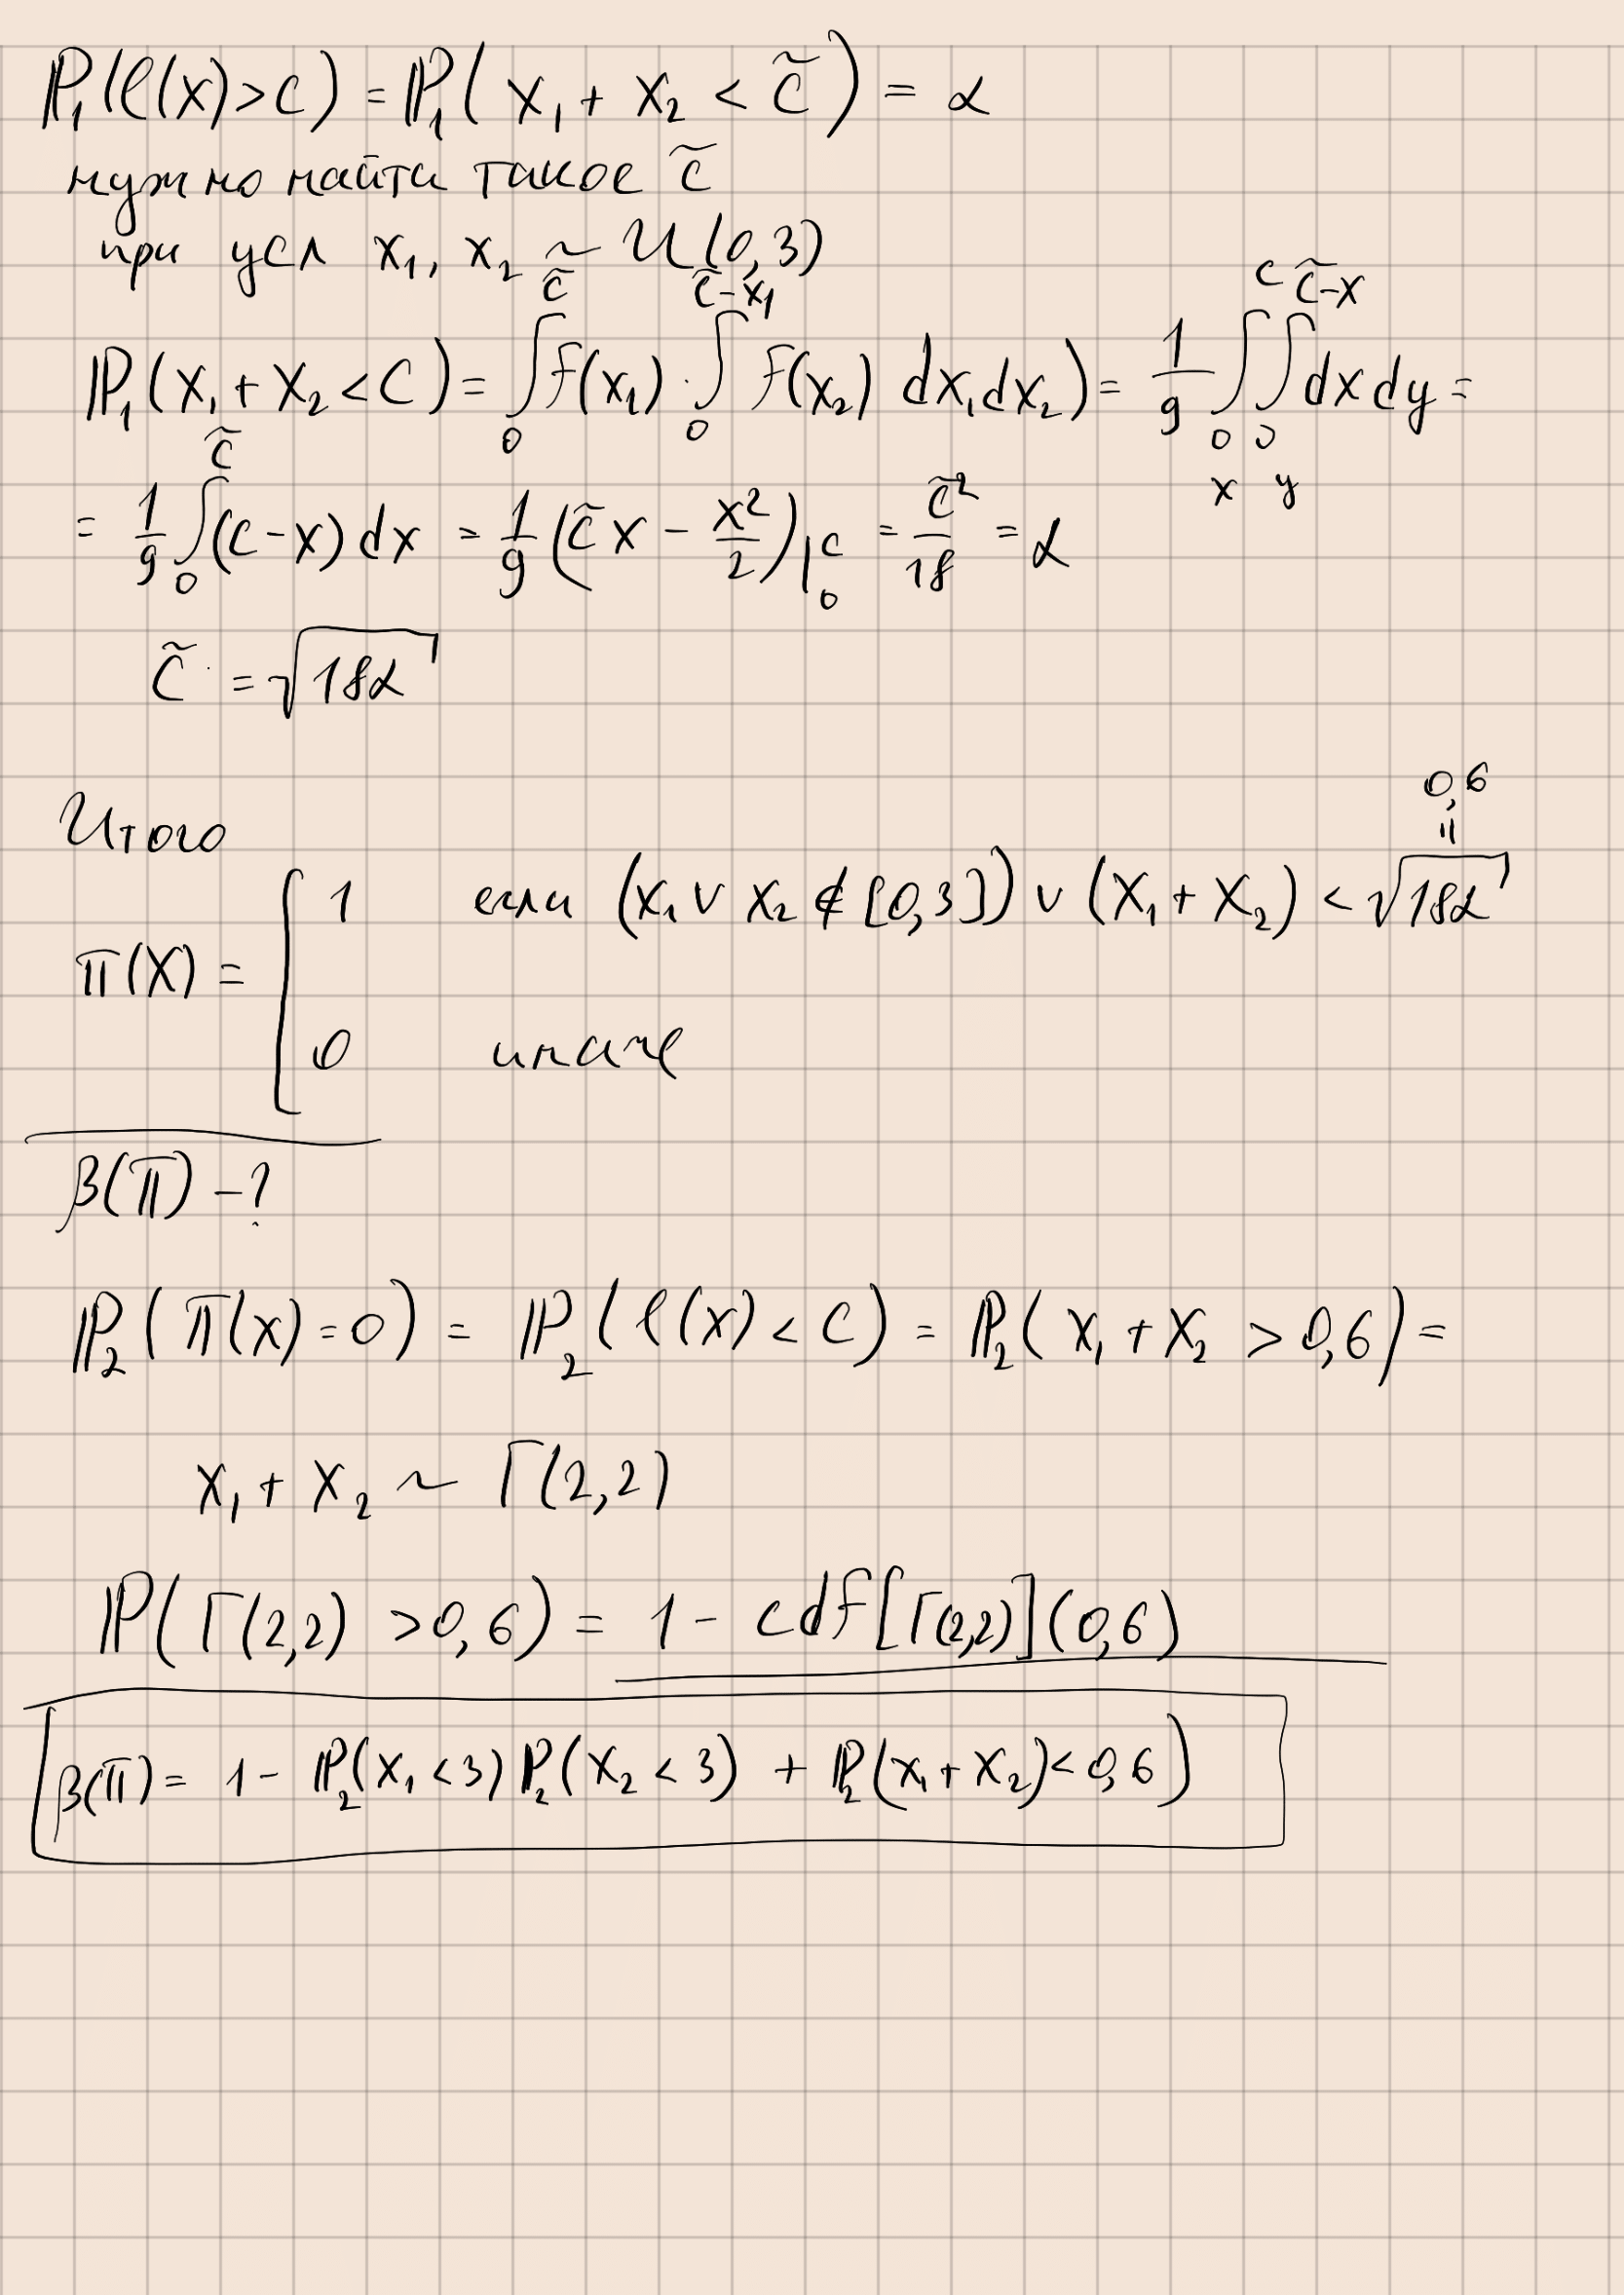 P₁(ℓ(X)>C) = P₁( X₁ + X₂ < C̃ ) = α
нужно найти такое C̃
при усл X₁, X₂ ~ U(0,3)
P₁(X₁ + X₂ < C) = ∫₀^C̃ f(x₁) · ∫₀^(C̃-x₁) f(x₂) dx₁dx₂) = 1/9 ∫₀^C ∫₀^(C̃-x) dx dy =
x y
= 1/9 ∫₀^C̃ (C-x) dx = 1/9 (C̃x - x²/2)|₀^C = C̃²/18 = α
C̃ = √18α
0,6
Итого
=
1 если (X₁ ∨ X₂ ∉ [0,3]) ∨ (X₁ + X₂) < √18α
π(X) =
0 иначе
β(π) -?
P₂(π(X)=0) = P₂(ℓ(X) < C) = P₂(X₁ + X₂ > 0,6) =
X₁ + X₂ ~ Γ(2,2)
P(Γ(2,2) > 0,6) = 1 - cdf[Γ(2,2)](0,6)
β(π) = 1 - P₂(X₁ < 3) P₂(X₂ < 3) + P₂(X₁ + X₂) < 0,6)